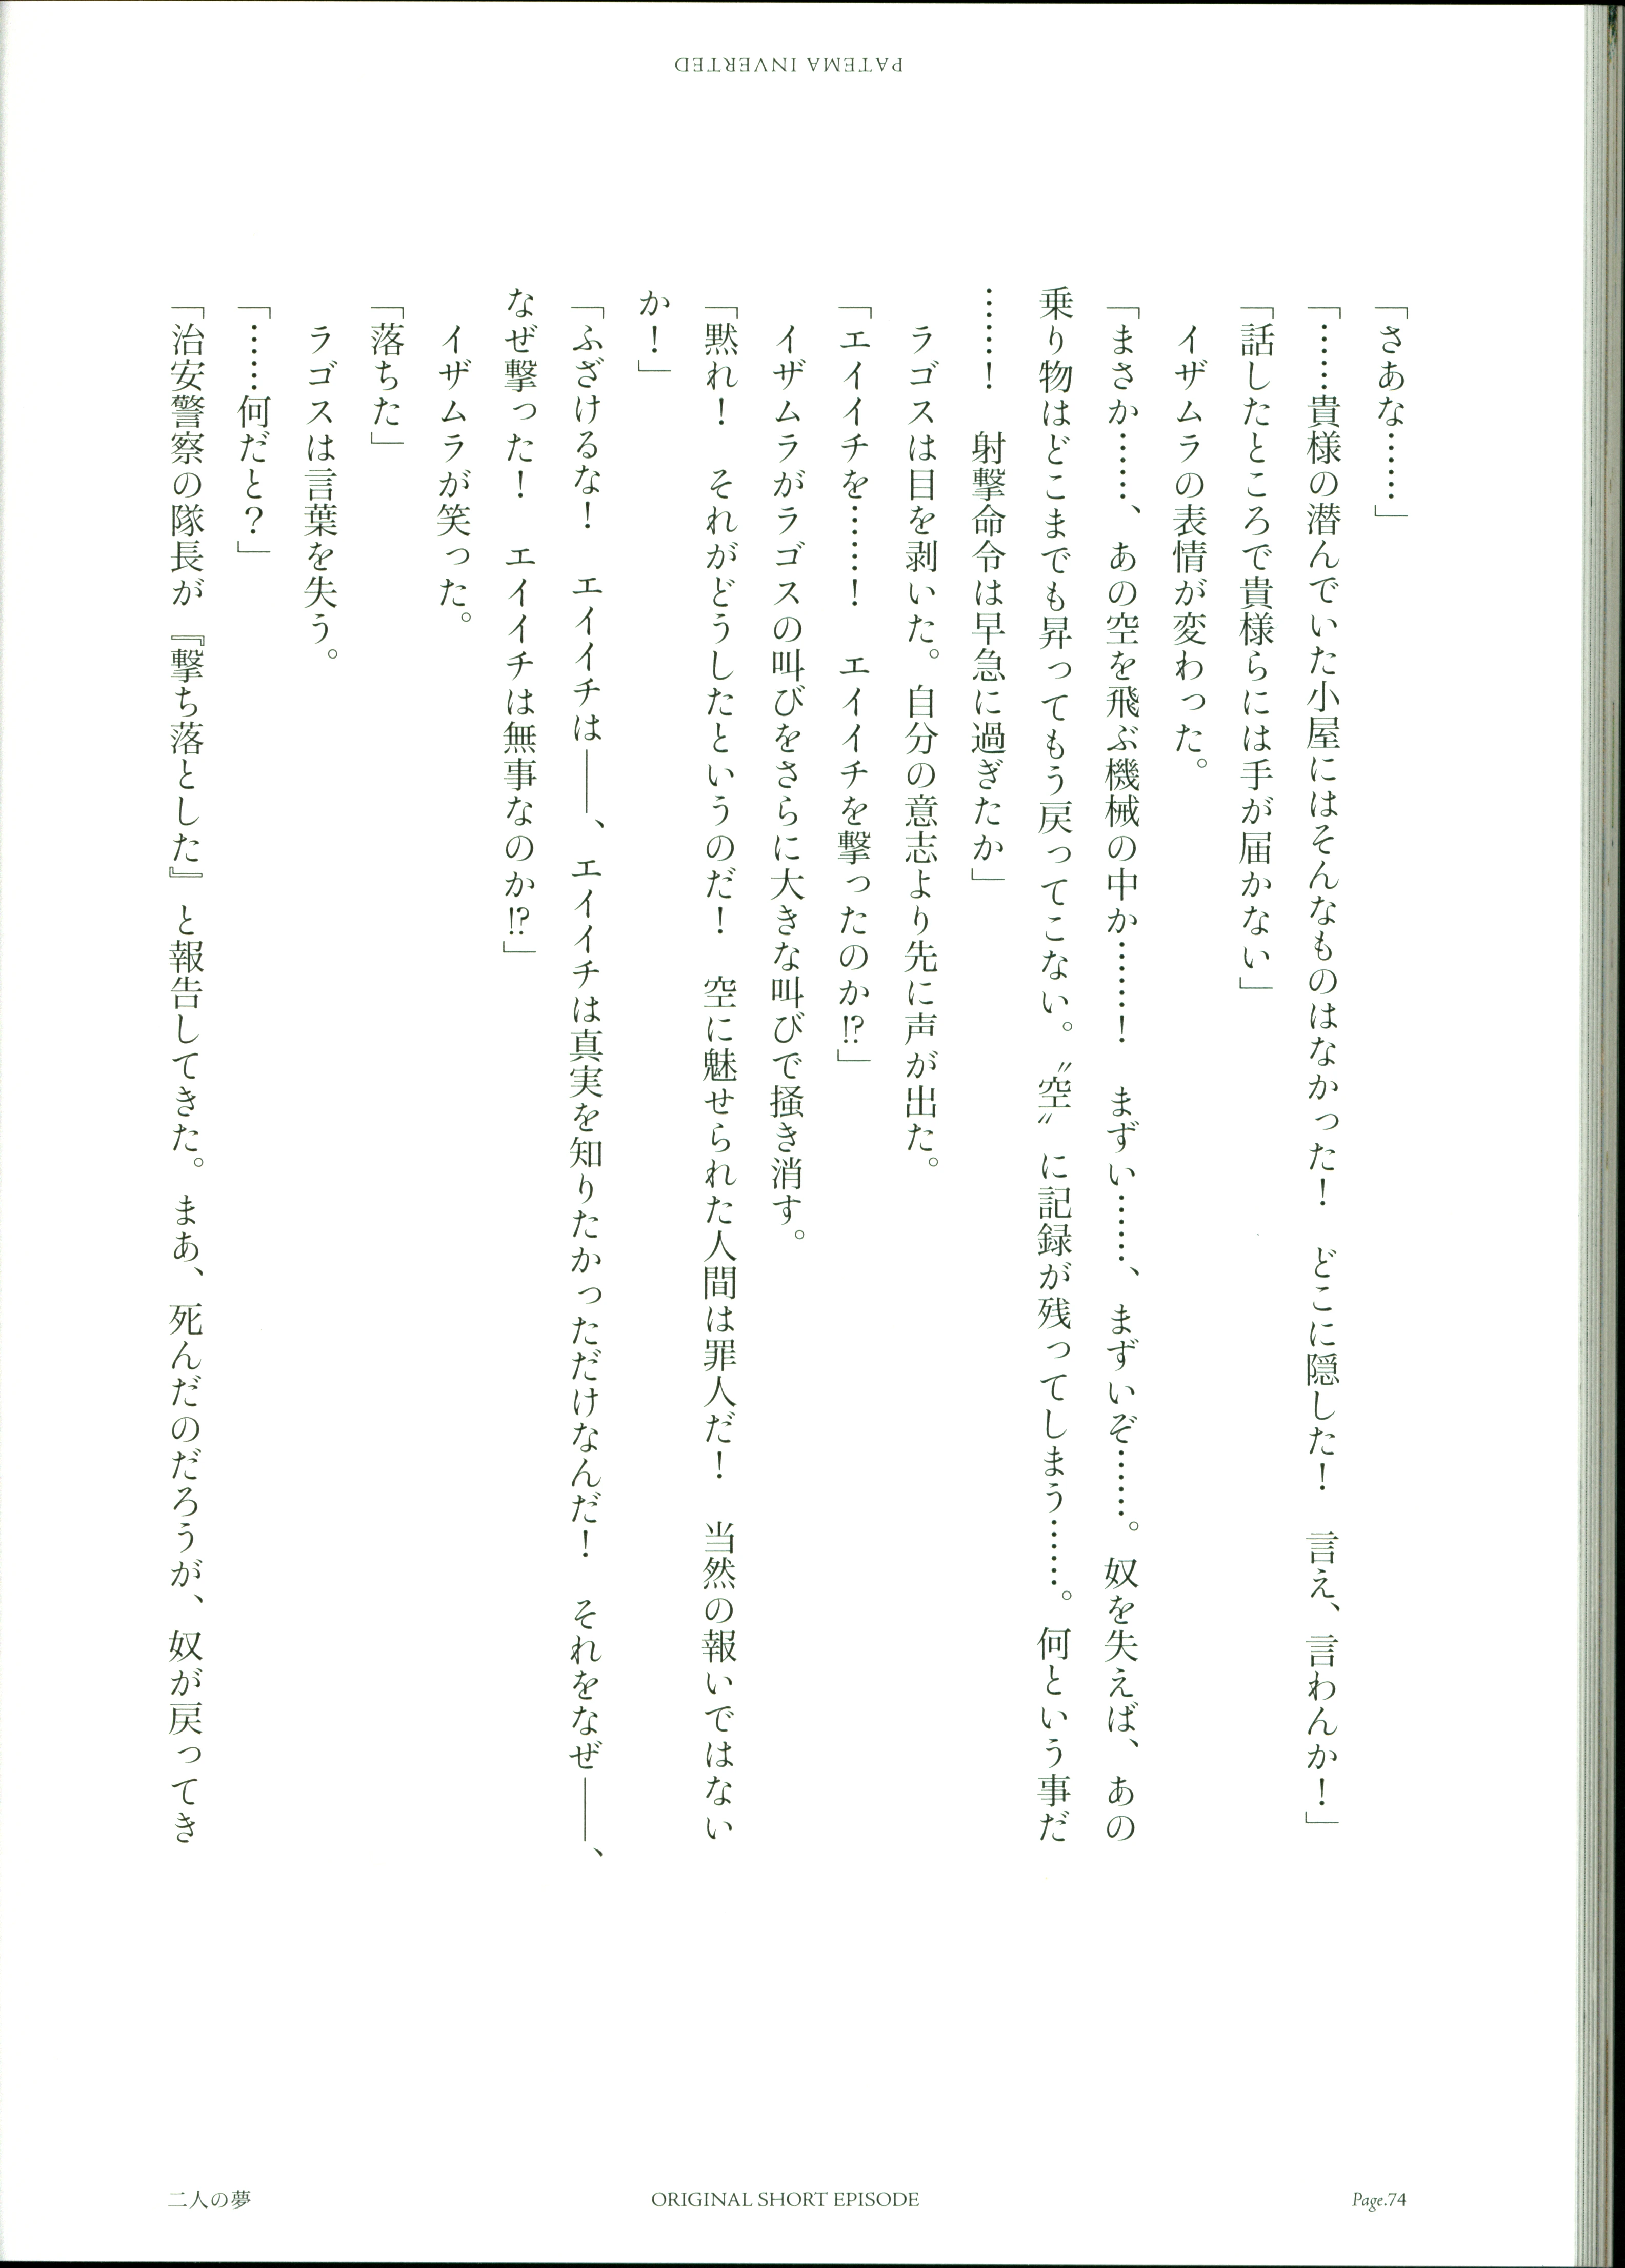 PATEMA INVERTED
「さあな……」
「……貴様の潜んでいた小屋にはそんなものはなかった！　どこに隠した！　言え、言わんか！」
「話したところで貴様らには手が届かない」
　イザムラの表情が変わった。
「まさか……、あの空を飛ぶ機械の中か………！　まずい……、まずいぞ……。奴を失えば、あの
乗り物はどこまでも昇ってもう戻ってこない。〝空〟に記録が残ってしまう……。何という事だ
………！　射撃命令は早急に過ぎたか」
　ラゴスは目を剥いた。自分の意志より先に声が出た。
「エイイチを………！　エイイチを撃ったのか⁉」
　イザムラがラゴスの叫びをさらに大きな叫びで掻き消す。
「黙れ！　それがどうしたというのだ！　空に魅せられた人間は罪人だ！　当然の報いではない
か！」
「ふざけるな！　エイイチは――、エイイチは真実を知りたかっただけなんだ！　それをなぜ――、
なぜ撃った！　エイイチは無事なのか⁉」
　イザムラが笑った。
「落ちた」
　ラゴスは言葉を失う。
「……何だと？」
「治安警察の隊長が『撃ち落とした』と報告してきた。まあ、死んだのだろうが、奴が戻ってき
二人の夢
ORIGINAL SHORT EPISODE
Page.74